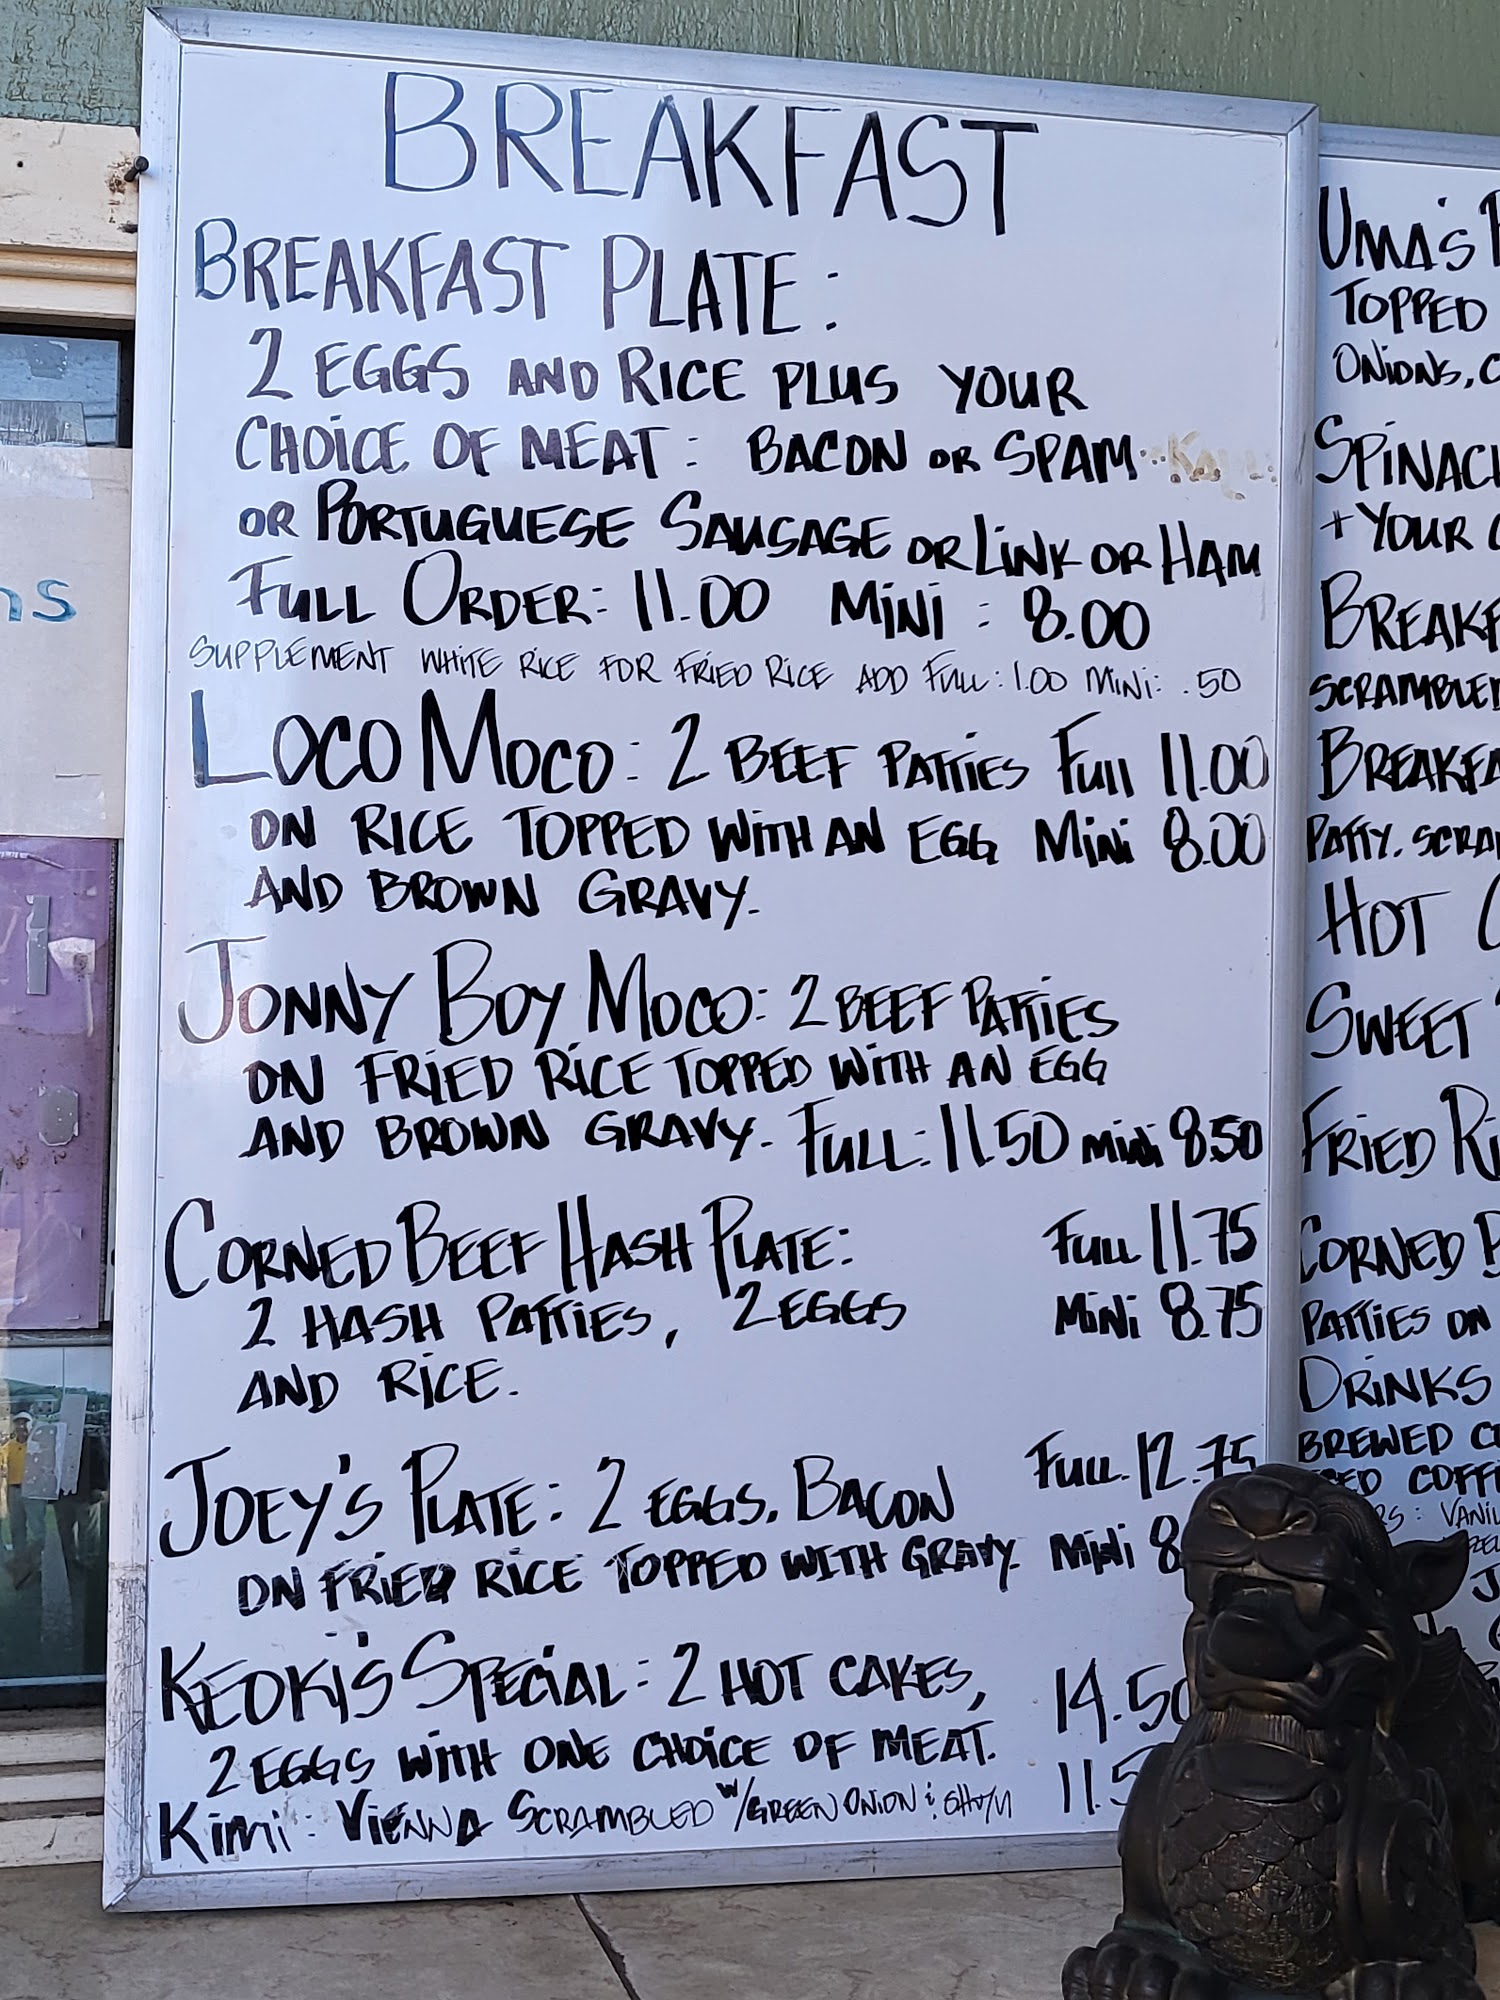 BREAKFAST
BREAKFAST PLATE:
2 EGGS AND RICE PLUS YOUR
CHOICE OF MEAT: BACON OR SPAM
OR PORTUGUESE SAUSAGE OR LINK OR HAM
FULL ORDER: 11.00 MINI: 8.00
SUPPLEMENT WHITE RICE FOR FRIED RICE ADD FULL: 1.00 MINI: .50
LOCO MOCO: 2 BEEF PATTIES FULL 11.00
ON RICE TOPPED WITH AN EGG MINI 8.00
AND BROWN GRAVY.
JONNY BOY MOCO: 2 BEEF PATTIES
ON FRIED RICE TOPPED WITH AN EGG
AND BROWN GRAVY. FULL: 11.50 MINI 8.50
CORNED BEEF HASH PLATE: FULL 11.75
2 HASH PATTIES, 2 EGGS MINI 8.75
AND RICE.
JOEY'S PLATE: 2 EGGS, BACON FULL 12.75
ON FRIED RICE TOPPED WITH GRAVY. MINI 8
KEOKI'S SPECIAL: 2 HOT CAKES, 14.50
2 EGGS WITH ONE CHOICE OF MEAT.
KIMI: VIENNA SCRAMBLED W/GREEN ONION & SHOYU 11.5
UMA'S
TOPPED
ONIONS,
SPINACH
+ YOUR
BREAKF
SCRAMBLED
BREAKFA
PATTY. SCRA
HOT
SWEET
FRIED RI
CORNED B
PATTIES ON
DRINKS
BREWED
COFF
: VANIL